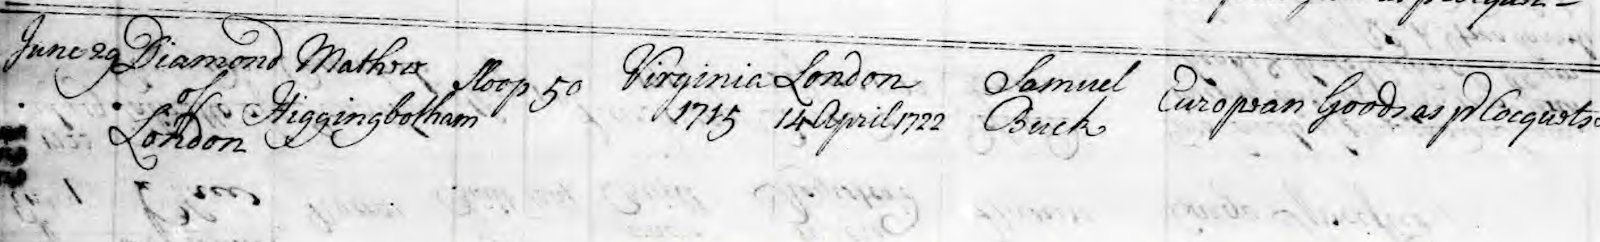 June 29 Diamond Mathew Sloop 50 Virginia London Samuel European Goods as pr Cocquets
of Higgingbotham 1715 14 April 1722 Buck
London